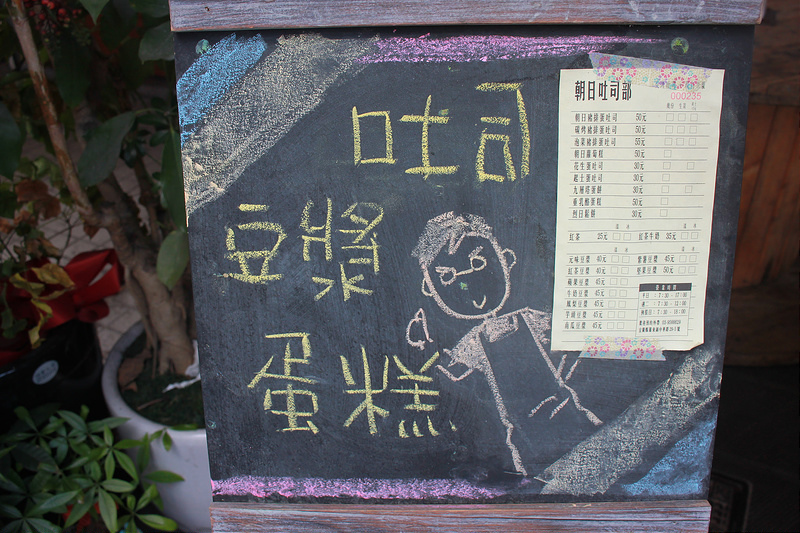 吐司
豆漿
蛋糕
朝日吐司部
000235
朝日豬排蛋吐司 50元
碳烤豬排蛋吐司 50元
泡菜豬排蛋吐司 55元
朝日蘿蔔糕 50元
花生蛋吐司 30元
起士蛋吐司 30元
九層塔蛋餅 30元
重乳酪蛋糕 50元
烈日鬆餅 30元
紅茶 25元
紅茶牛奶 35元
元味豆漿 40元
紫薯豆漿 45元
紅茶豆漿 40元
堅果豆漿 50元
蘋果豆漿 45元
牛奶豆漿 45元
鳳梨豆漿 45元
芋頭豆漿 45元
南瓜豆漿 45元
營業時間